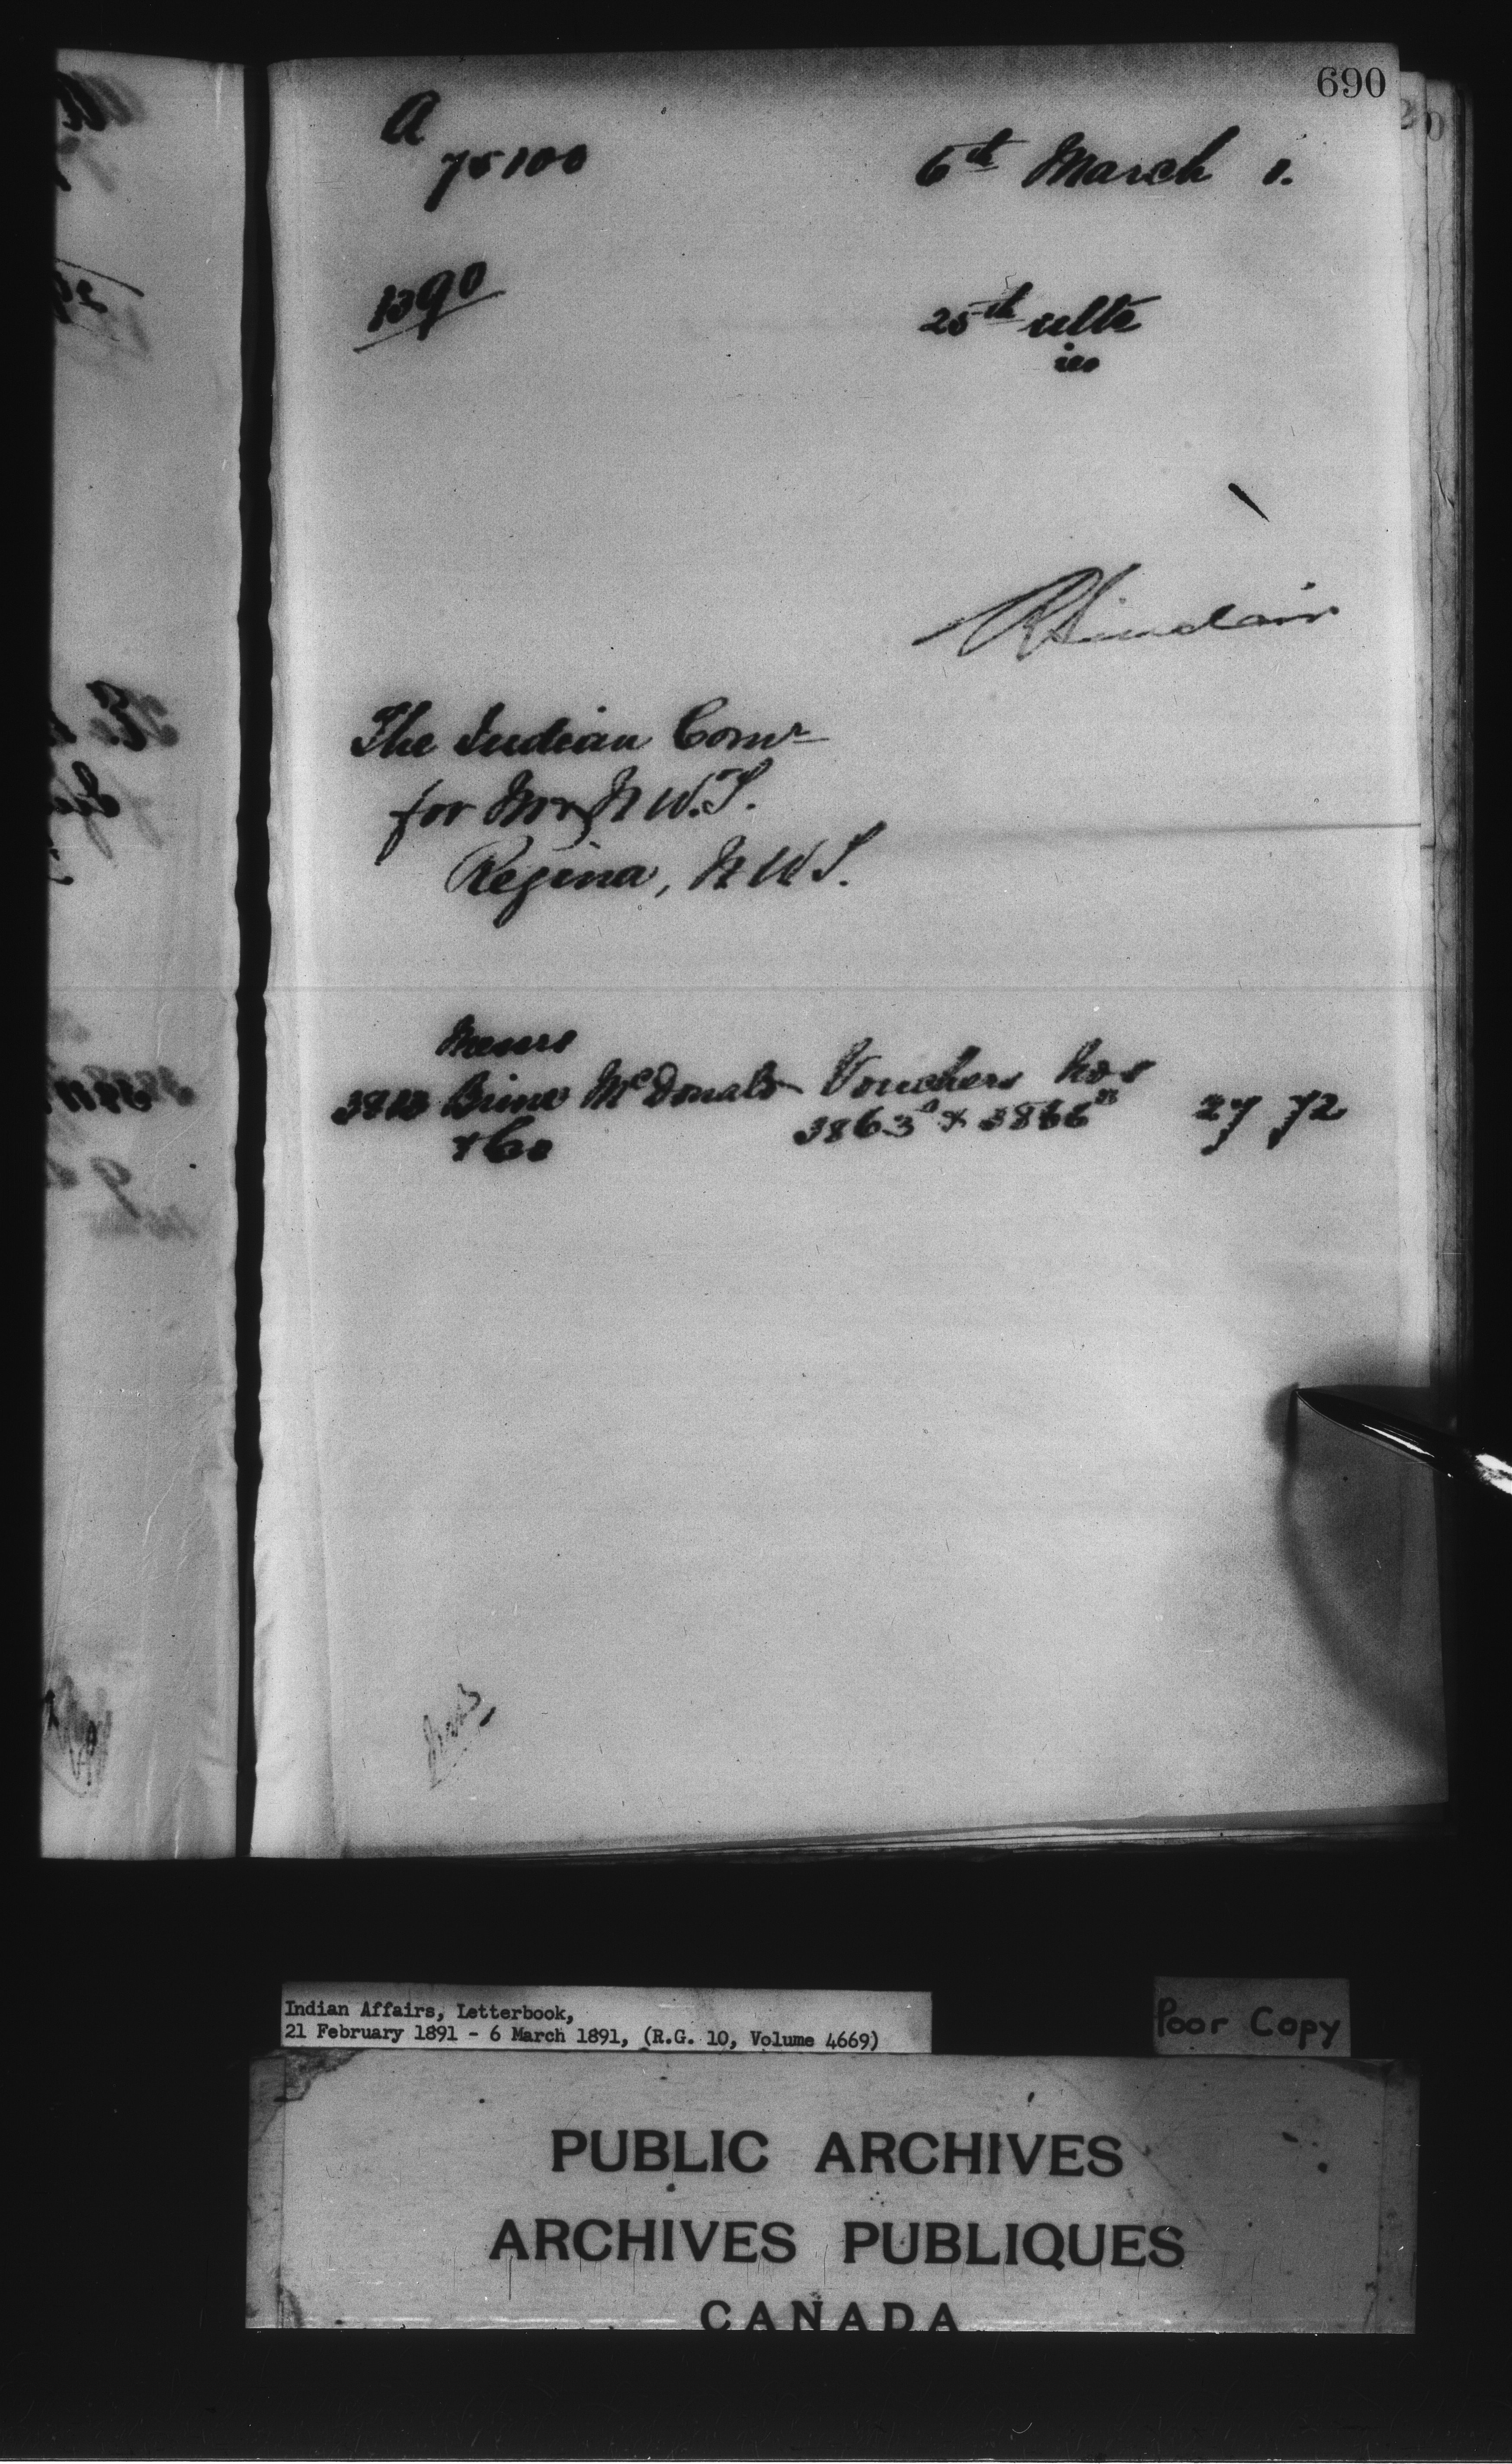 690
A
75100
6th March 1.
1390
25th ulto
RSinclair
The Indian Comr
for M & N.W.T.
Regina, N.W.T.
Messrs
3813 Brine McDonald Vouchers Nos
& Co
3863A & 3866B
27 72
Indian Affairs, Letterbook,
21 February 1891 - 6 March 1891, (R.G. 10, Volume 4669)
Poor Copy
PUBLIC ARCHIVES
ARCHIVES PUBLIQUES
CANADA